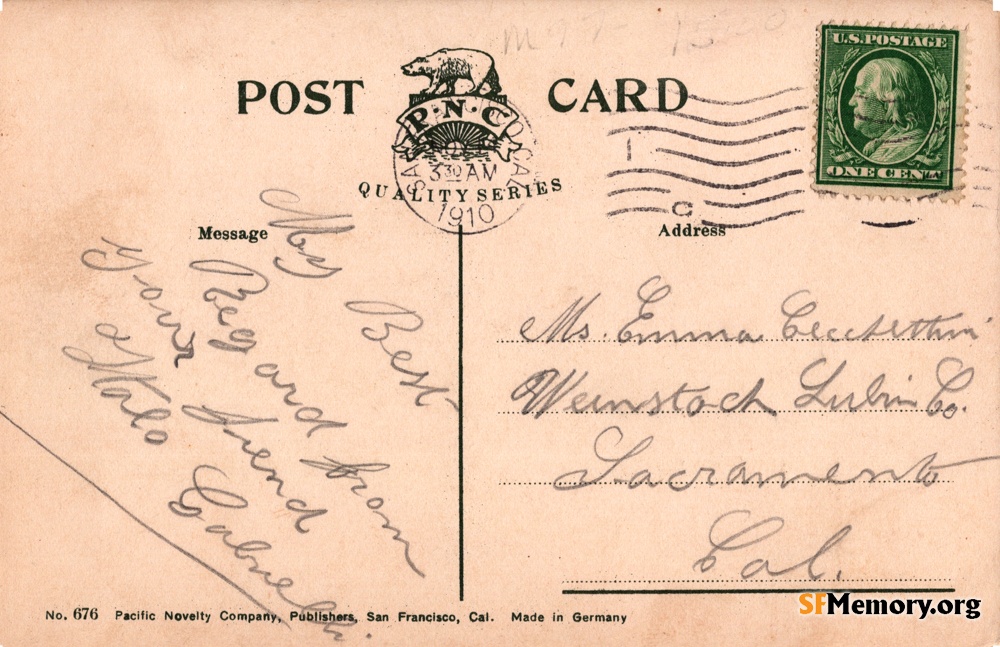 POST CARD
P·N·C
QUALITY SERIES
U.S. POSTAGE
ONE CENT
3 30 AM
1910
Message
Address
My Best
Regard from
Your friend
Italo
Ms. Emma
Weinstock Lubin Co.
Sacramento
Cal.
No. 676 Pacific Novelty Company, Publishers, San Francisco, Cal. Made in Germany
SFMemory.org